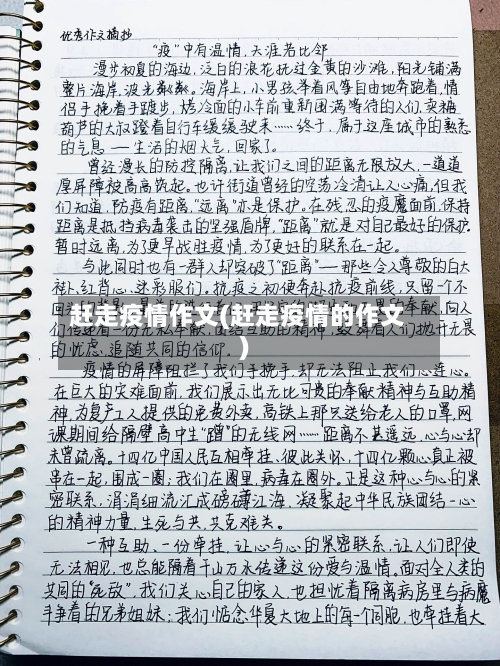 优秀作文摘抄
“疫”中有温情,天涯若比邻
漫步初夏的海边,泛白的浪花抚过金黄的沙滩,阳光铺满
整片海岸,波光粼粼。海岸上,小男孩举着风筝自由地奔跑着,情
侣手挽着手踱步,烤冷面的小车前重新围满等待的人们,卖糖
葫芦的大叔蹬着自行车缓缓驶来……终于,属于这座城市的熟悉
的气息——生活的烟火气,回家了。
曾经漫长的防控隔离,让我们之间的距离无限放大,一道道
厚屏障被高高筑起。也许街道曾经的空荡冷清让人心痛,但我
们知道,防疫有距离,“远离”亦是保护。在残忍的疫魔面前,保持
距离是抵挡病毒袭击的坚强盾牌,“距离”就是对自己最好的保护。
暂时远离,为了更早战胜疫情,为了更好的联系在一起。
与此同时也有一群人却突破了“距离”——那些令人尊敬的白大
褂、红背心、迷彩服们。抗疫之初便奔赴抗疫前线,只留个不
赶走疫情作文(赶走疫情的作文
)
的忧虑,追随共同的信仰。
疫情的屏障阻拦了我们手挽手,却无法阻止我们心连心。
在巨大的灾难面前,我们展示出无比可贵的奉献精神与互助精
神,为复产工人提供的免费外卖,高铁上那只送给老人的口罩,网
课期间给隔壁高中生“蹭”的无线网……距离不甚遥远,心与心却
未曾疏离。十四亿中国人民互相牵挂、彼此关怀,十四亿颗心真正被
串在一起,围成一圈:我们在圈里,病毒在圈外。正是这种心与心的紧
密联系,涓涓细流汇成磅礴江海,凝聚起中华民族团结一心
的精神力量,生死与共,共克难关。
一种互助、一份牵挂,让心与心的紧密联系,让人们即使
无法相见,也总能隔着千山万水传递这份爱与温情。面对全人类的
共同的“死敌”,我们关心自己的家人,也担忧着隔离病房里与病魔
斗争着的兄弟姐妹;我们惦念华夏大地上的每一个同胞,也牵挂着大